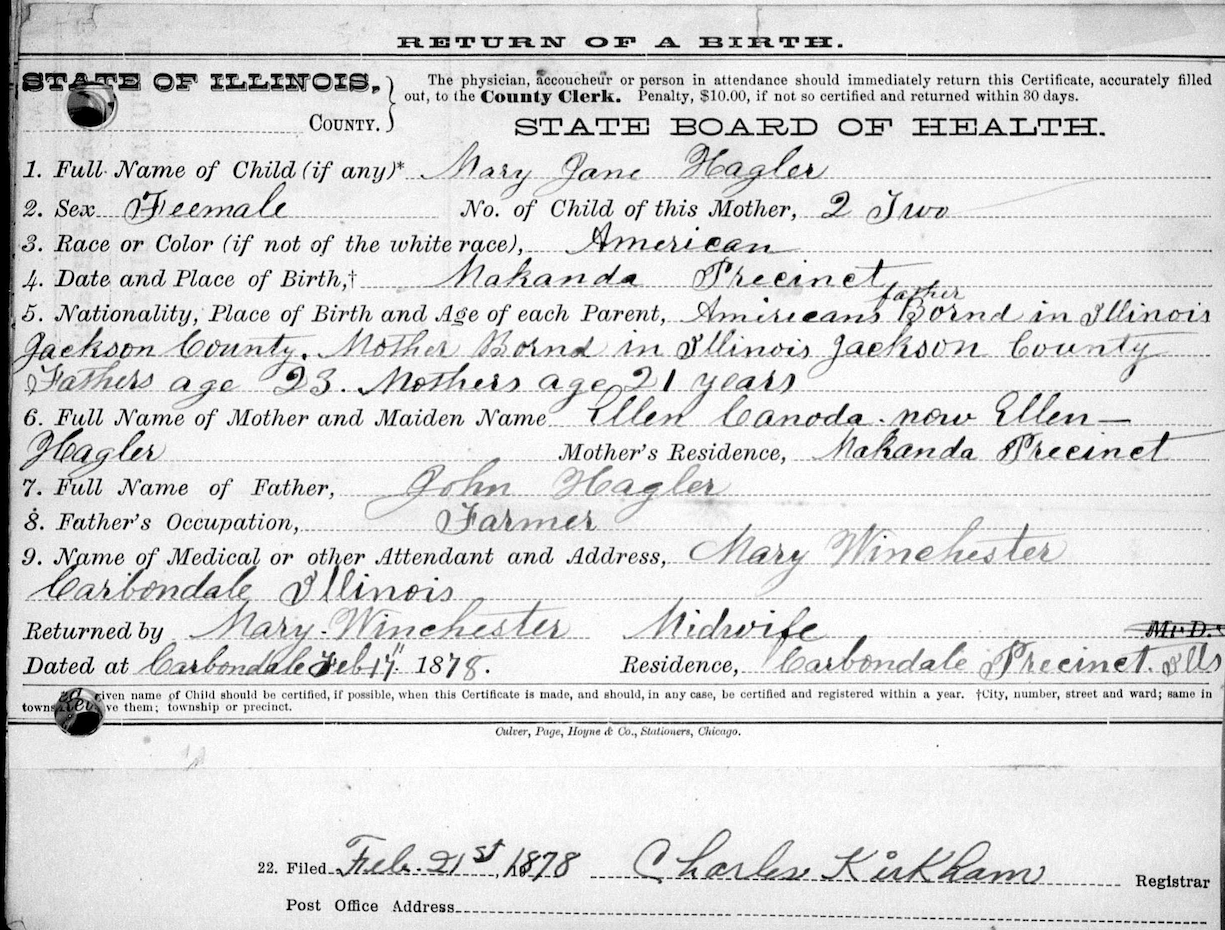 RETURN OF A BIRTH.
STATE OF ILLINOIS,
The physician, accoucheur or person in attendance should immediately return this Certificate, accurately filled
out, to the County Clerk. Penalty, $10.00, if not so certified and returned within 30 days.
COUNTY.
STATE BOARD OF HEALTH.
1. Full Name of Child (if any)* Mary Jane Hagler
2. Sex Feemale No. of Child of this Mother, 2 Two
3. Race or Color (if not of the white race), American
4. Date and Place of Birth,† Makanda Precinct
5. Nationality, Place of Birth and Age of each Parent, Americans father Bornd in Illinois
Jackson County. Mother Bornd in Illinois Jackson County
Fathers age 23. Mothers age 21 years
6. Full Name of Mother and Maiden Name Ellen Canoda. now Ellen—
Hagler Mother's Residence, Makanda Precinct
7. Full Name of Father, John Hagler
8. Father's Occupation, Farmer
9. Name of Medical or other Attendant and Address, Mary Winchester
Carbondale Illinois
Returned by Mary Winchester Midwife M. D.
Dated at Carbondale Feb 17" 1878. Residence, Carbondale Precinct. Ills
given name of Child should be certified, if possible, when this Certificate is made, and should, in any case, be certified and registered within a year. †City, number, street and ward; same in
them; township or precinct.
Culver, Page, Hoyne & Co., Stationers, Chicago.
22. Filed Feb. 21st, 1878 Charles Kirkham Registrar
Post Office Address